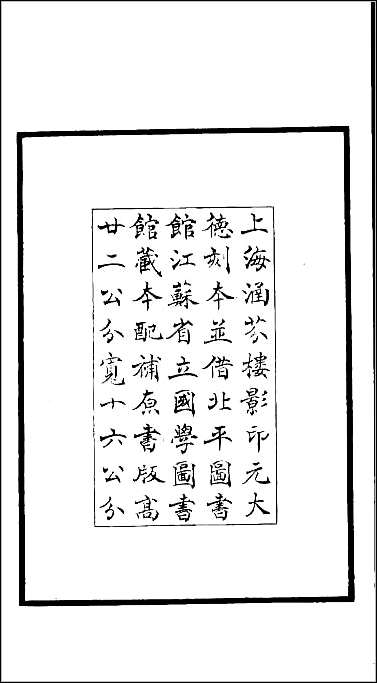 上海涵芬樓影印元大
德刻本並借北平圖書
館江蘇省立國學圖書
館藏本配補原書版高
廿二公分寬十六公分